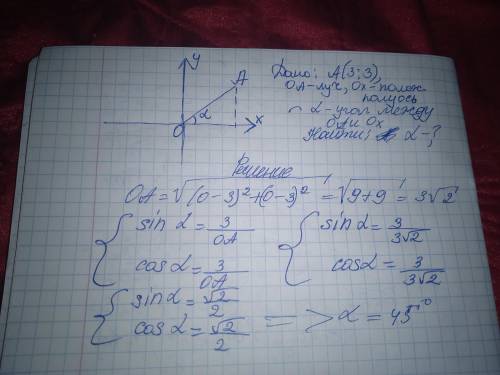 y
A
α
O
x
Дано: A(3;3),
OA-луч, Ox-полож
полуось
α-угол между
OA и Ox
Найти: α-?
Решение
OA = √((0-3)²+(0-3)²) = √(9+9) = 3√2
{ sin α = 3/OA
cos α = 3/OA
{ sin α = 3/3√2
cos α = 3/3√2
{ sin α = √2/2
cos α = √2/2 => α = 45°